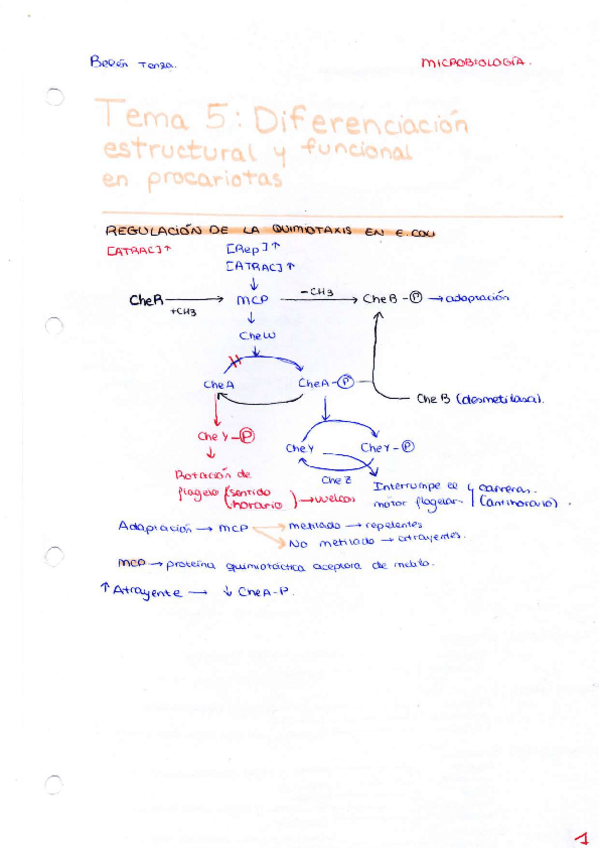 Belén Tonza.
MICROBIOLOGÍA.
Tema 5: Diferenciación
estructural y funcional
en procariotas
REGULACIÓN DE LA QUIMIOTAXIS EN E.COLI
[ATRAC]↑ [Rep]↑
[ATRAC]↑
CheR → MCP -CH3 → CheB-P → adaptación
+CH3
CheW
CheA CheA-P
Che B (desmetilasa).
Che Y-P
Che Y CheY-P
Che Z
Rotación de
flagelo (sentido
horario) → vuelcos
Interrumpe el
motor flagelar
carreras.
(antihorario).
Adaptación → MCP metilado → repelentes
No metilado → atrayentes.
MCP → proteína quimiotáctica aceptora de metilo.
↑ Atrayente → ↓ CheA-P.
1